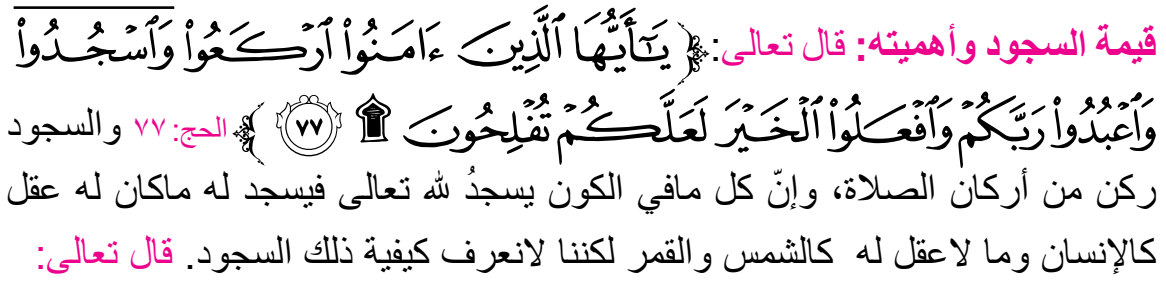 قيمة السجود وأهميته: قال تعالى: ﴿ يَـٰٓأَيُّهَا ٱلَّذِينَ ءَامَنُوا۟ ٱرْكَعُوا۟ وَٱسْجُدُوا۟
وَٱعْبُدُوا۟ رَبَّكُمْ وَٱفْعَلُوا۟ ٱلْخَيْرَ لَعَلَّكُمْ تُفْلِحُونَ ۩ ٧٧ ﴾ الحج: ٧٧ والسجود
ركن من أركان الصلاة، وإنّ كل مافي الكون يسجدُ لله تعالى فيسجد له ماكان له عقل
كالإنسان وما لاعقل له كالشمس والقمر لكننا لانعرف كيفية ذلك السجود. قال تعالى: